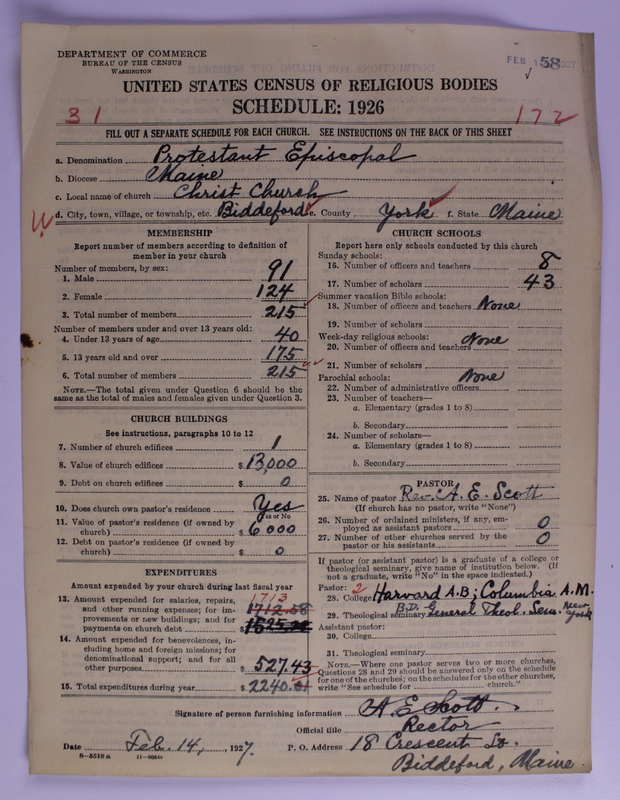 DEPARTMENT OF COMMERCE
BUREAU OF THE CENSUS
WASHINGTON
FEB 58
UNITED STATES CENSUS OF RELIGIOUS BODIES
SCHEDULE: 1926
31 172
FILL OUT A SEPARATE SCHEDULE FOR EACH CHURCH. SEE INSTRUCTIONS ON THE BACK OF THIS SHEET
a. Denomination Protestant Episcopal
b. Diocese Maine
c. Local name of church Christ Church
d. City, town, village, or township, etc. Biddeford e. County York f. State Maine
MEMBERSHIP
Report number of members according to definition of
member in your church
Number of members, by sex:
1. Male 91
2. Female 124
3. Total number of members 215
Number of members under and over 13 years old:
4. Under 13 years of age 40
5. 13 years old and over 175
6. Total number of members 215
NOTE.—The total given under Question 6 should be the
same as the total of males and females given under Question 3.
CHURCH BUILDINGS
See instructions, paragraphs 10 to 12
7. Number of church edifices 1
8. Value of church edifices $13,000
9. Debt on church edifices $ 0
10. Does church own pastor's residence Yes
Yes or No
11. Value of pastor's residence (if owned by
church) $ 6000
12. Debt on pastor's residence (if owned by
church) $ 0
EXPENDITURES
Amount expended by your church during last fiscal year
13. Amount expended for salaries, repairs, 1713
and other running expenses; for im- 1712.58
provements or new buildings; and for
payments on church debt
14. Amount expended for benevolences, in-
cluding home and foreign missions; for
denominational support; and for all
other purposes $ 527.43
15. Total expenditures during year $ 2240.01
CHURCH SCHOOLS
Report here only schools conducted by this church
Sunday schools:
16. Number of officers and teachers 8
17. Number of scholars 43
Summer vacation Bible schools:
18. Number of officers and teachers None
19. Number of scholars
Week-day religious schools: None
20. Number of officers and teachers
21. Number of scholars
Parochial schools: None
22. Number of administrative officers
23. Number of teachers—
a. Elementary (grades 1 to 8)
b. Secondary
24. Number of scholars—
a. Elementary (grades 1 to 8)
b. Secondary
PASTOR
25. Name of pastor Rev. A. E. Scott
(If church has no pastor, write "None")
26. Number of ordained ministers, if any, em-
ployed as assistant pastors 0
27. Number of other churches served by the
pastor or his assistants 0
If pastor (or assistant pastor) is a graduate of a college or
theological seminary, give name of institution below. (If
not a graduate, write "No" in the space indicated.)
Pastor: 2
28. College Harvard A.B; Columbia A.M.
29. Theological seminary B.D. General Theol. Sem. New York
Assistant pastor:
30. College
31. Theological seminary
NOTE.—Where one pastor serves two or more churches,
Questions 28 and 29 should be answered only on the schedule
for one of the churches; on the schedules for the other churches,
write "See schedule for church."
Signature of person furnishing information A E Scott.
Official title Rector
Date Feb. 14, 1927. P. O. Address 18 Crescent St.
Biddeford, Maine
8-5518 a